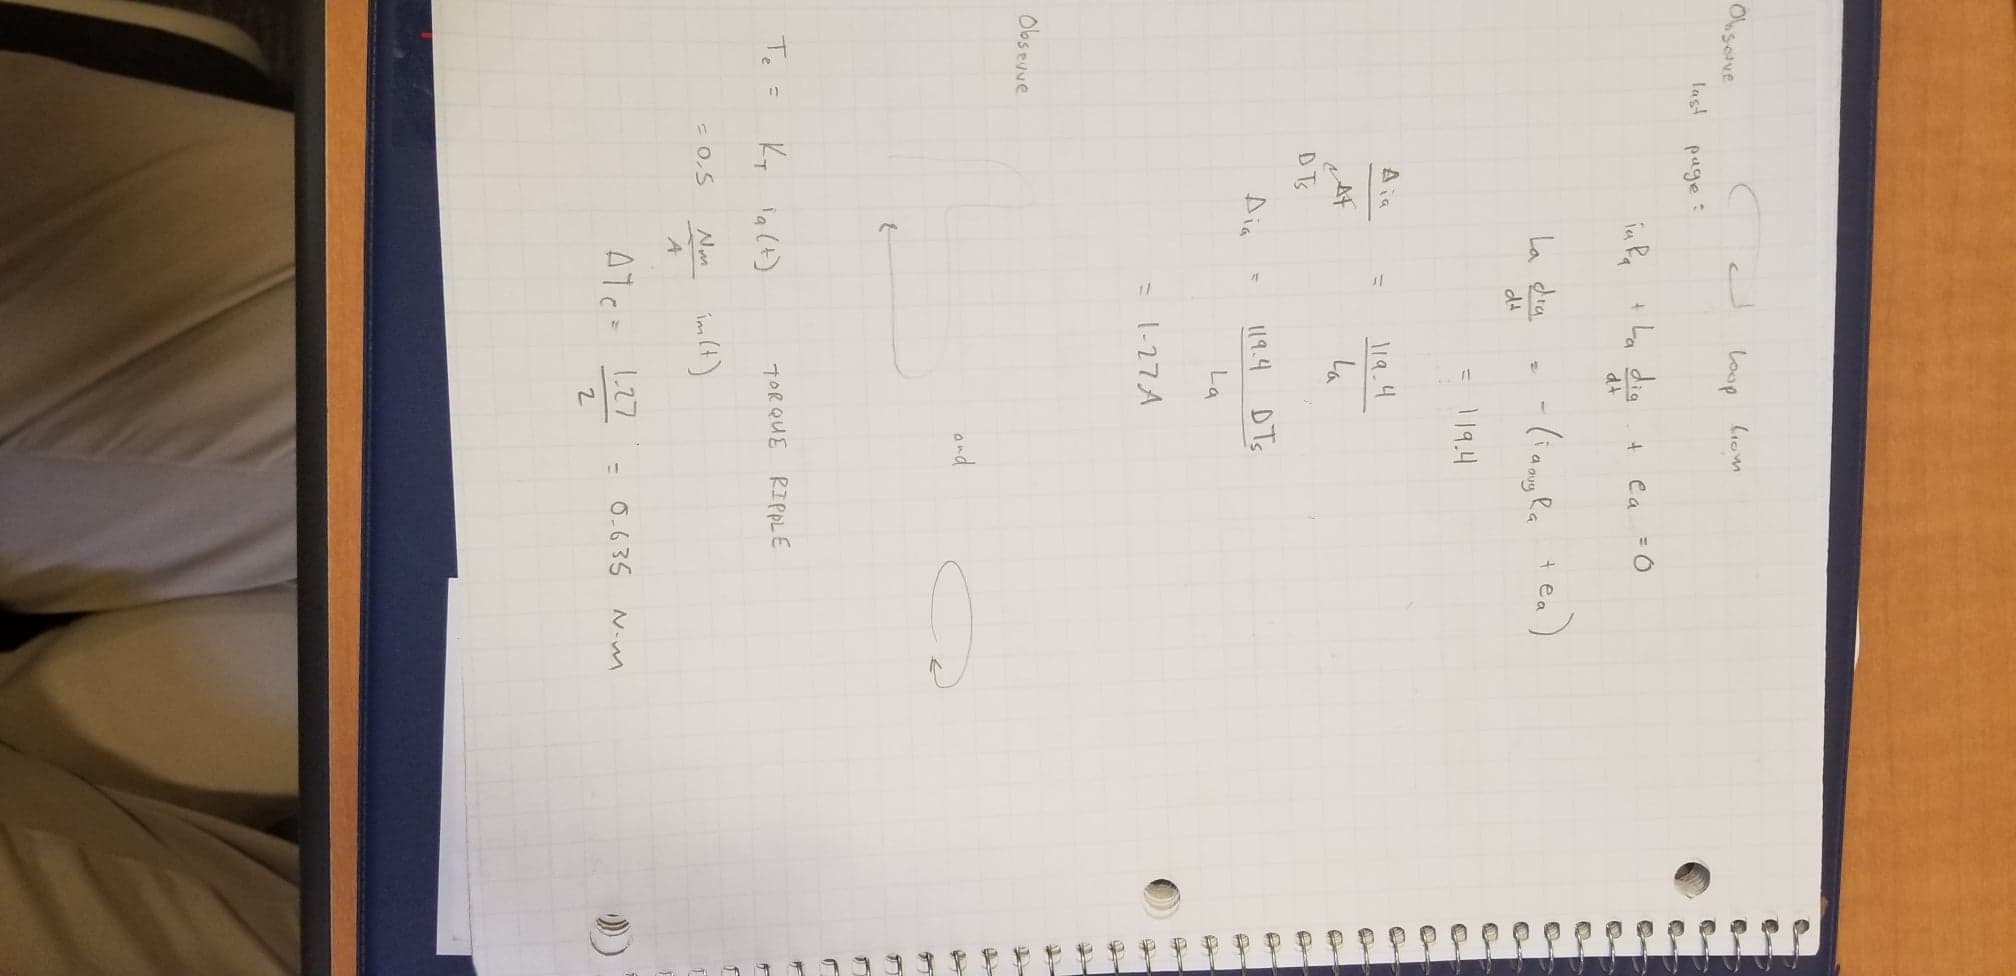 Observe loop from
last page:
iaRa + La dia/dt + ea = 0
La dia/dt = -(iaavgRa + ea)
= 119.4
Δia/Δt = 119.4/La
DTs
Δia = 119.4 DTs/La
= 1.27A
Observe and
Te = KT ia(t) TORQUE RIPPLE
= 0.5 Nm/A im(t)
ΔTe = 1.27/2 = 0.635 N·m